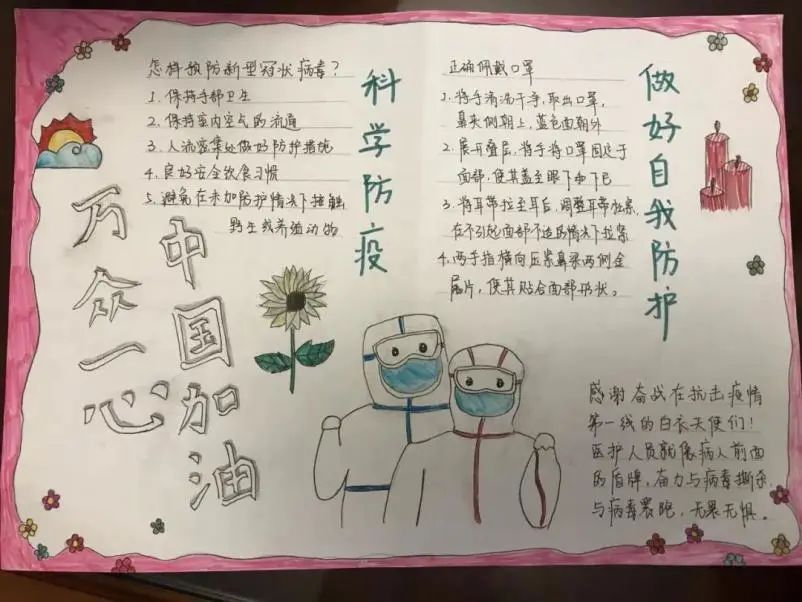 怎样预防新型冠状病毒?
1. 保持手部卫生
2. 保持室内空气的流通
3. 人流密集处做好防护措施
4. 良好安全饮食习惯
5. 避免在未加防护情况下接触
野生或养殖动物
科学防疫
万众一心
中国加油
正确佩戴口罩
1. 将手清洗干净,取出口罩,
鼻夹侧朝上,蓝色面朝外
2. 展开叠层,将手将口罩固定于
面部,使其盖至眼下和下巴
3. 将耳带拉至耳后,调整耳带拉紧,
在不引起面部不适的情况下拉紧
4. 两手指横向压紧鼻梁两侧金
属片,使其贴合面部形状。
做好自我防护
感谢奋战在抗击疫情
第一线的白衣天使们!
医护人员就像病人前面
的盾牌,奋力与病毒撕杀,
与病毒赛跑,无畏无惧。